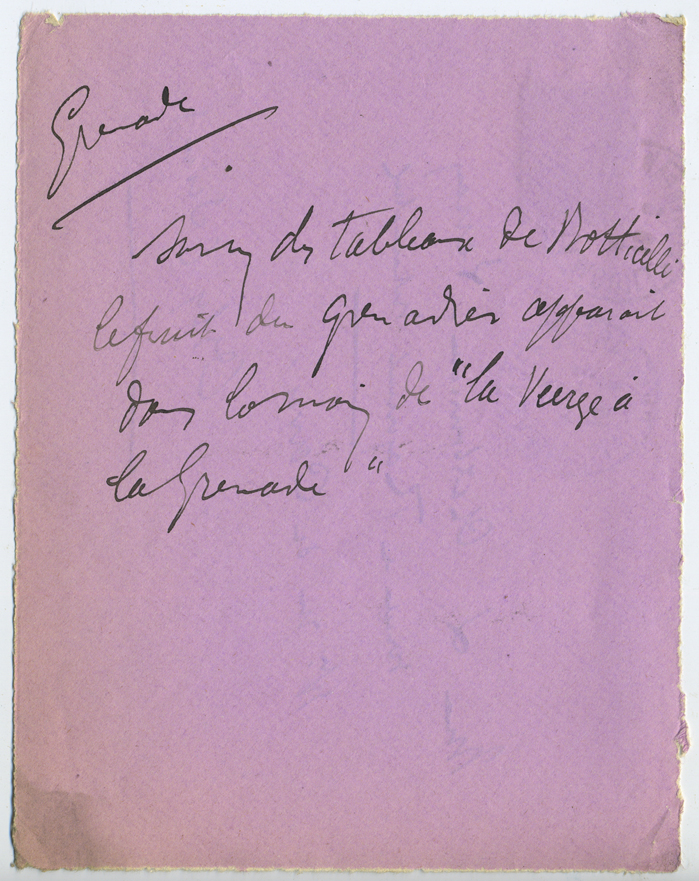 Grenade
Sur un des tableaux de Botticelli
le fruit du grenadier apparait
dans la main de "la Vierge à
la Grenade"